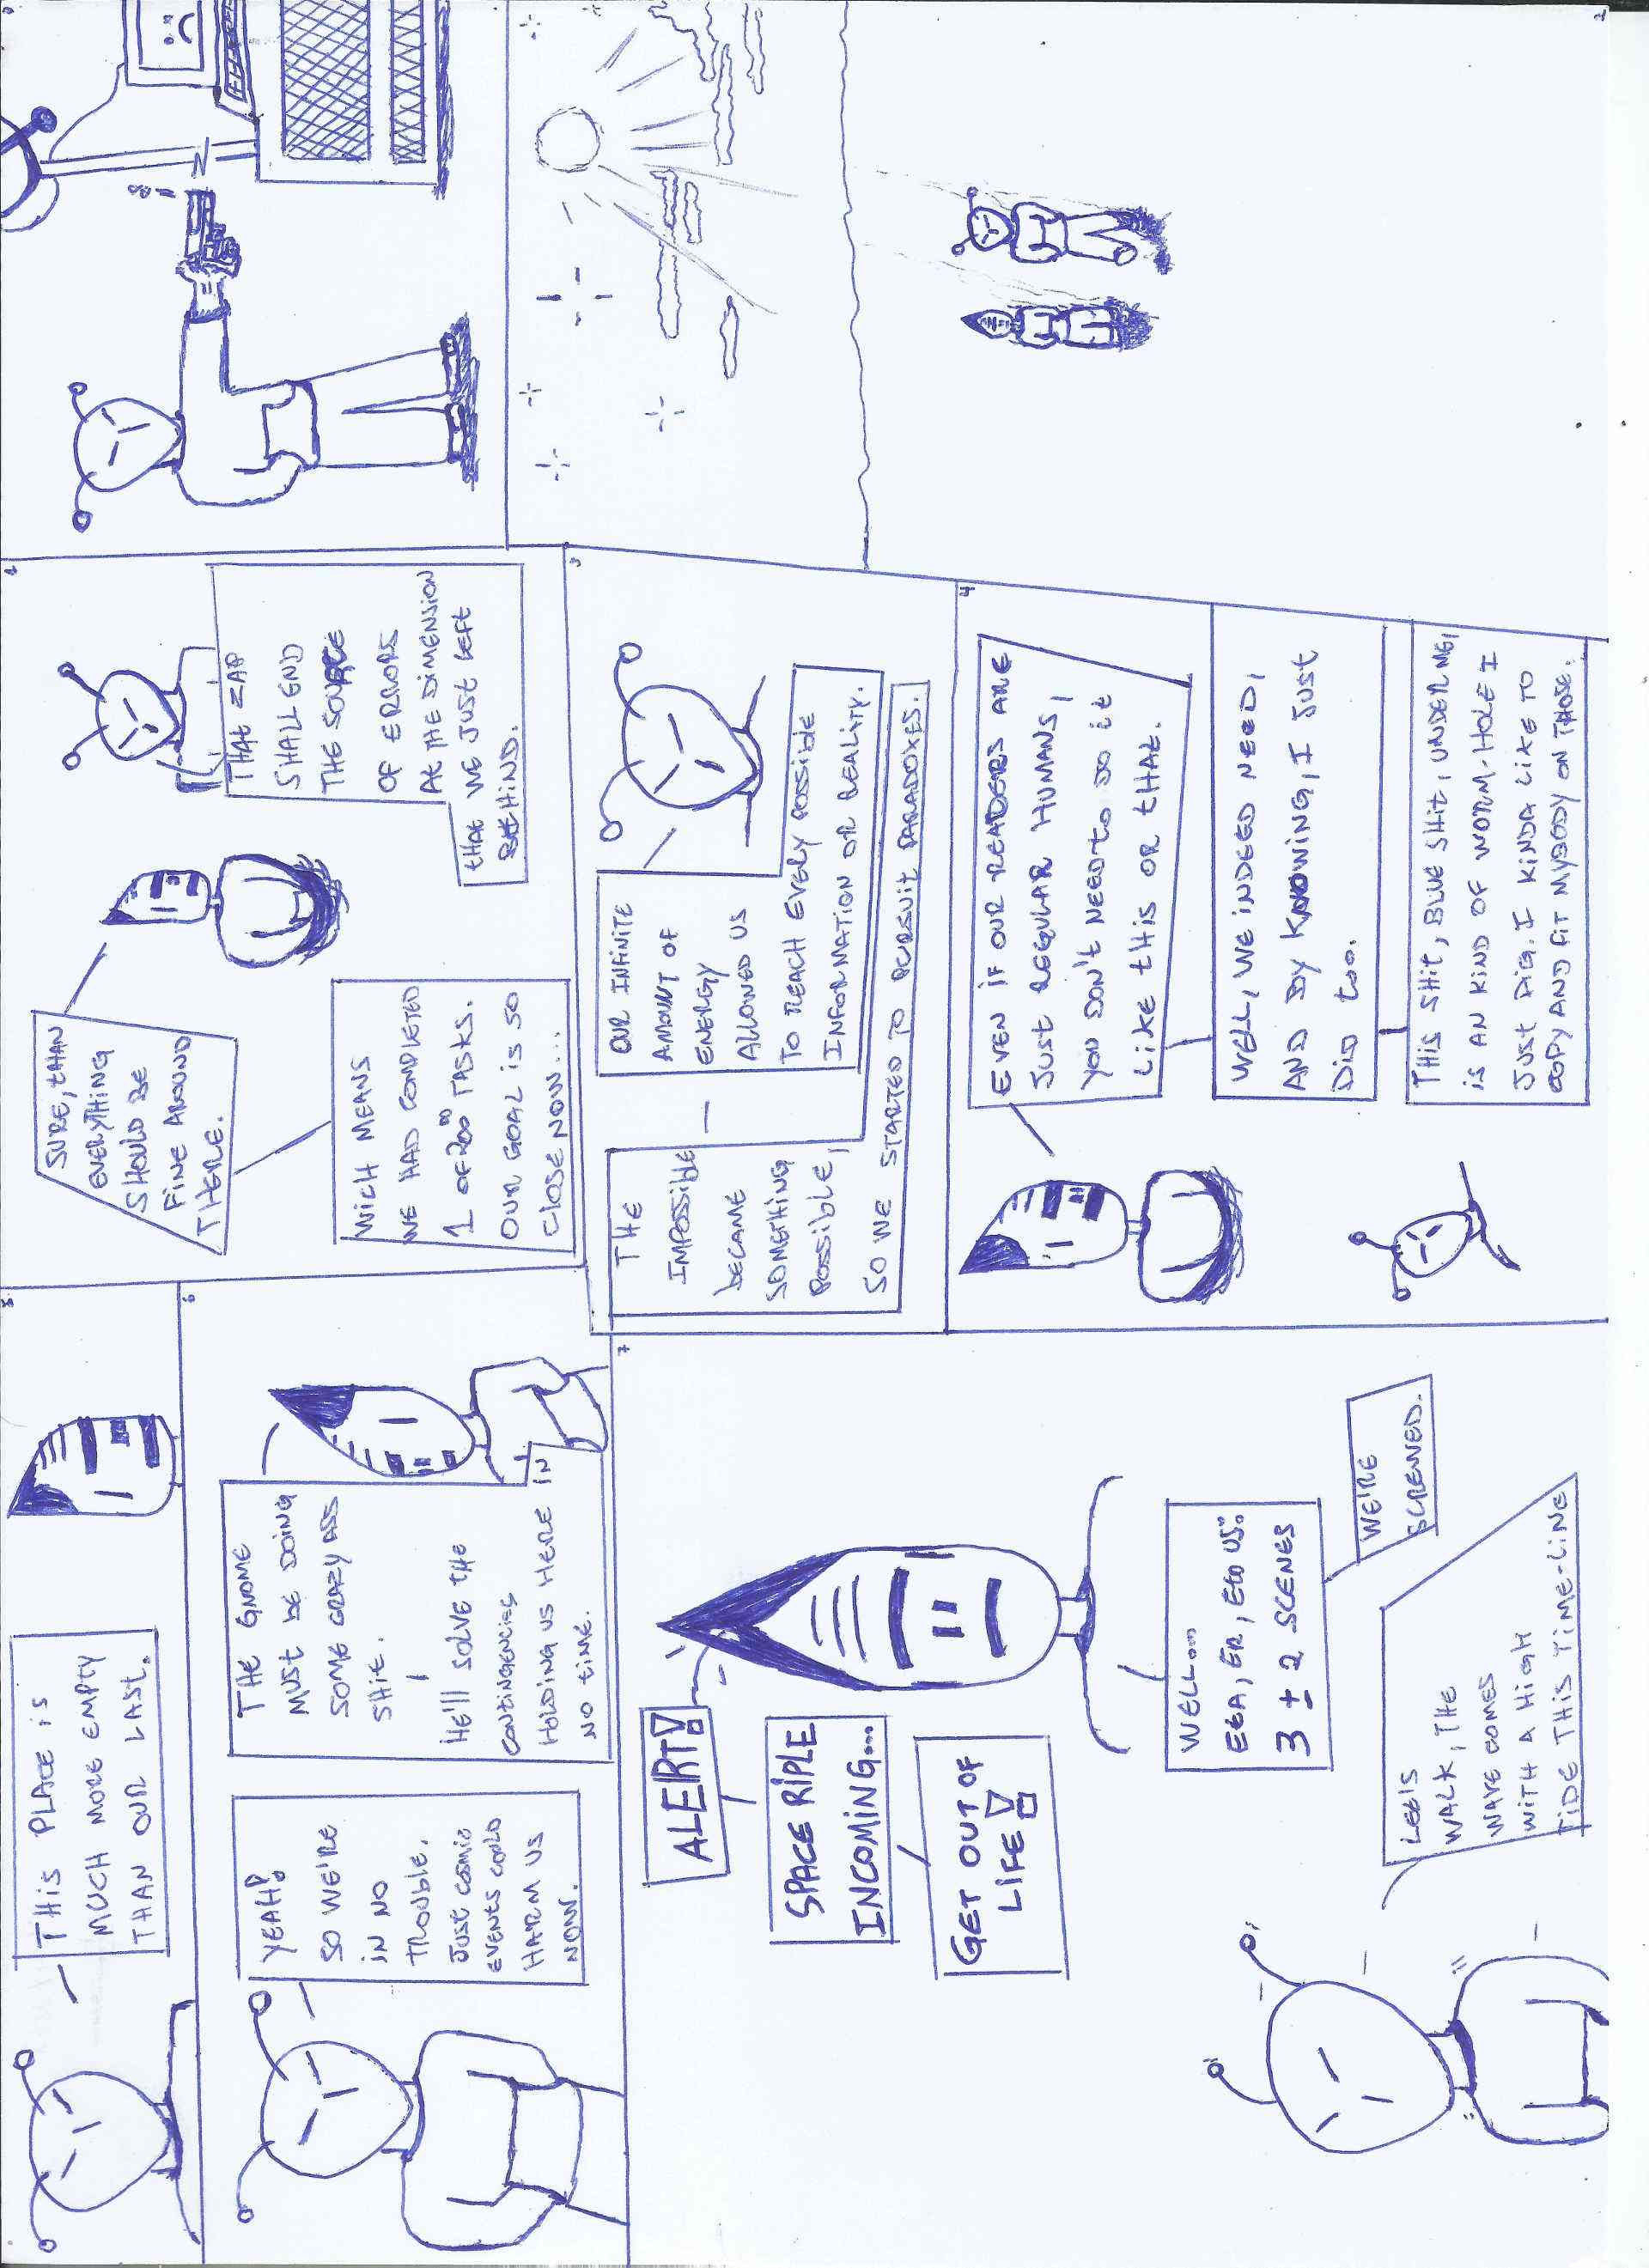 THAT ZAP
SHALL END
THE SOURCE
OF ERRORS
AT THE DIMENSION
THAT WE JUST LEFT
BEHIND.
SURE, THAN
EVERYTHING
SHOULD BE
FINE AROUND
THERE.
WICH MEANS
WE HAD COMPLETED
1 OF 200 TASKS.
OUR GOAL IS SO
CLOSE NOW...
3
OUR INFINITE
AMOUNT OF
ENERGY
ALLOWED US
TO REACH EVERY POSSIBLE
INFORMATION OR REALITY.
THE
IMPOSSIBLE
BECAME
SOMETHING
POSSIBLE,
SO WE STARTED TO PURSUIT PARADOXES.
4
EVEN IF OUR READERS ARE
JUST REGULAR HUMANS,
YOU DON'T NEED TO DO IT
LIKE THIS OR THAT.
WELL, WE INDEED NEED,
AND BY KNOWING, I JUST
DID TOO.
THIS SHIT, BLUE SHIT, UNDER ME,
IS AN KIND OF WORM-HOLE I
JUST DIG. I KINDA LIKE TO
COPY AND FIT MY BODY ON THOSE.
5
THIS PLACE IS
MUCH MORE EMPTY
THAN OUR LAST.
6
THE GNOME
MUST BE DOING
SOME CRAZY ASS
SHIT.
HE'LL SOLVE THE
CONTINGENCIES
HOLDING US HERE IN
NO TIME.
YEAH!
SO WE'RE
IN NO
TROUBLE.
JUST COSMIC
EVENTS COULD
HARM US
NOW.
7
ALERT!
SPACE RIPLE
INCOMING...
GET OUT OF
LIFE!
WELL...
3 ± 2 SCENES
WE'RE
SCREWED.
LET'S
WALK, THE
WAVE COMES
WITH A HIGH
TIDE THIS TIME-LINE